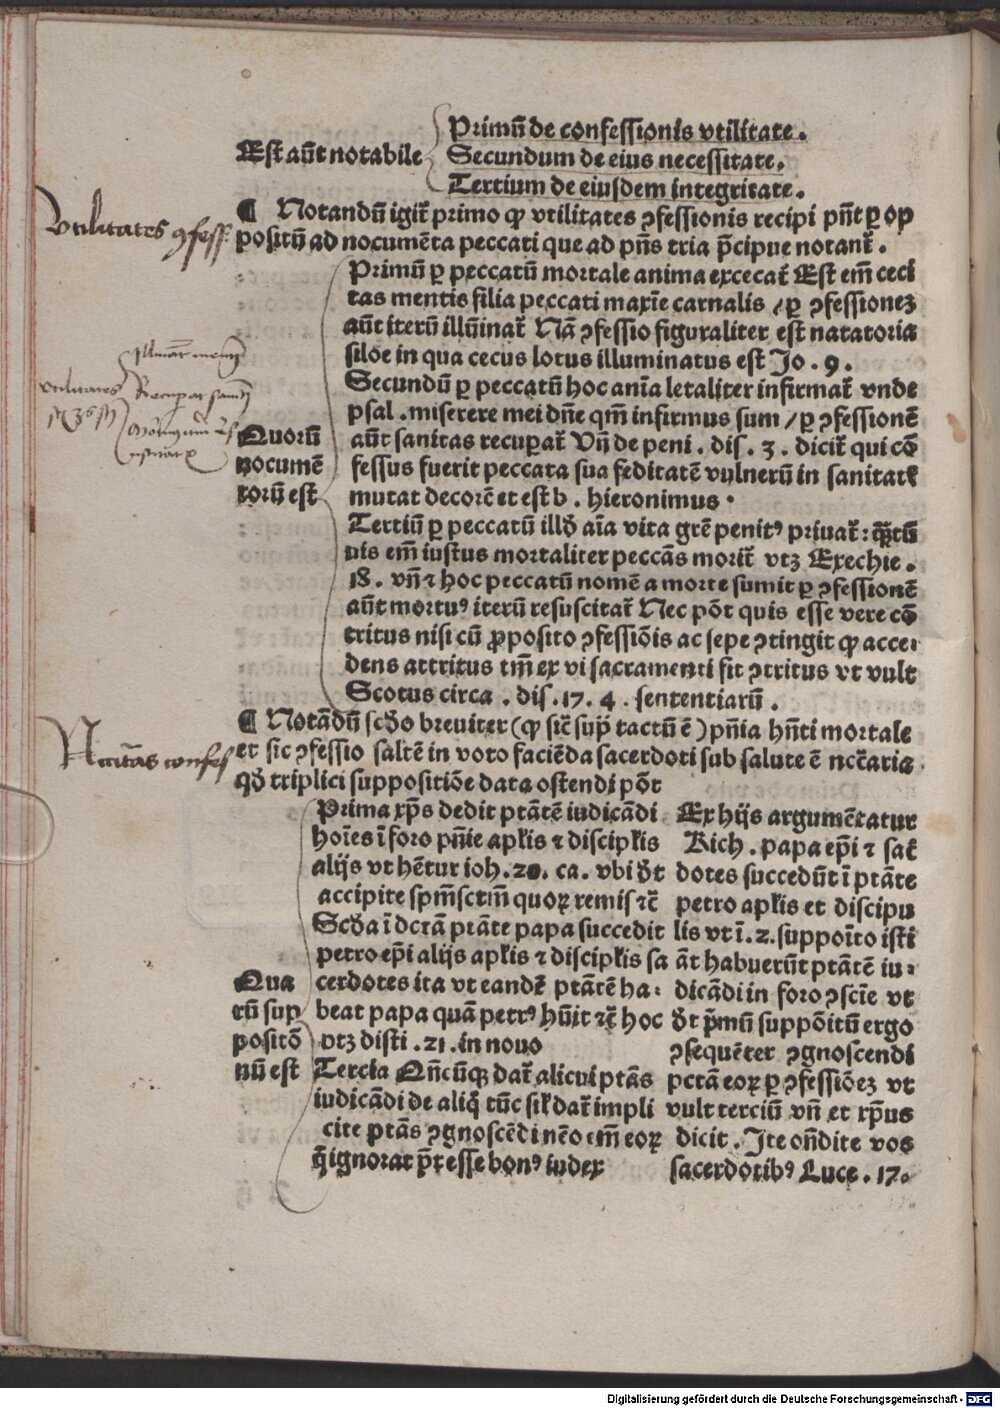 Primū de confessionis vtilitate.
Est aūt notabile Secundum de eius necessitate.
Tertium de eiusdem integritate.
¶ Notandū igit̄ primo ꝙ vtilitates ꝯfessionis recipi pn̄t ꝑ op
positū ad nocumēta peccati que ad pn̄s tria p̄cipue notant̄.
Vtilitates ꝯfess.
Primū ꝑ peccatū mortale anima excecat̄ Est em̄ ceci
tas mentis filia peccati maxīe carnalis / ꝑ ꝯfessionez
aūt iterū illūinat̄ Nā ꝯfessio figuraliter est natatoria
siloe in qua cecus lotus illuminatus est Jo. 9.
Secundū ꝑ peccatū hoc anīa letaliter infirmat̄ vnde
psal. miserere mei dn̄e qm̄ infirmus sum / ꝑ ꝯfessionē
Quorū aūt sanitas recuꝑat̄ Vn̄ de peni. dis. 3. dicit̄ qui cō
nocumē fessus fuerit peccata sua feditatē vulnerū in sanitatē
torū est mutat decorē et est b. hieronimus.
Tertiū ꝑ peccatū illꝺ aīa vita grē penitꝰ priuat̄: q̄tū
uis em̄ iustus mortaliter peccās morit̄ vtꝫ Ezechie.
18. vn̄ ⁊ hoc peccatū nomē a morte sumit ꝑ ꝯfessionē
aūt mortuꝰ iterū resuscitat̄ Nec pōt quis esse vere cō
tritus nisi cū ꝓposito ꝯfessiōis ac sepe ꝯtingit ꝙ acce
dens attritus tm̄ ex vi sacramenti fit ꝯtritus vt vult
Scotus circa. dis. 17. 4. sententiarū.
¶ Notādū scꝺo breuiter (ꝙ sic̄ sup̄ tactū ē) pn̄ia hn̄ti mortale
et sic ꝯfessio saltē in voto faciēda sacerdoti sub salute ē nc̄taria
qꝺ triplici suppositiōe data ostendi pōt
Prima xp̄s dedit ptātē iudicādi
hoīes ī foro pn̄ie aplis ⁊ discipl̄is
alijs vt hētur ioh. 20. ca. vbi ꝺt
accipite spm̄sctm̄ quoꝝ remis ⁊c̄
Scꝺa ī dctā ptāte papa succedit
petro ep̄i alijs apl̄is ⁊ discipl̄is sa
Qua cerdotes ita vt eandē ptātē ha
rū sup beat papa quā petrꝰ hūit ⁊c̄ hoc
positō vtꝫ disti. 21. in nouo
nū est Tercia Qn̄cūqꝫ dat̄ alicui ptās
iudicādi de aliq̄ tūc sil̄ dat̄ impli
cite ptās ꝯgnoscēdi nēo em̄ eoꝝ
q̄ ignorat p̄t esse bonꝰ iudex
Ex hijs argumētatur
Rich. papa ep̄i ⁊ sac̄
dotes succedūt ī ptāte
petro apl̄is et discipu
lis vt ī. 2. suppoīto isti
āt habuerūt ptātē iu
dicādi in foro ꝯscīe vt
ꝺt p̄mū suppōitū ergo
ꝯsequēter ꝯgnoscendi
pctā eoꝝ ꝑ ꝯfessiōez vt
vult terciū vn̄ et xp̄us
dicit. Jte on̄dite vos
sacerdotibꝰ Luce. 17.
Digitalisierung gefördert durch die Deutsche Forschungsgemeinschaft - DFG